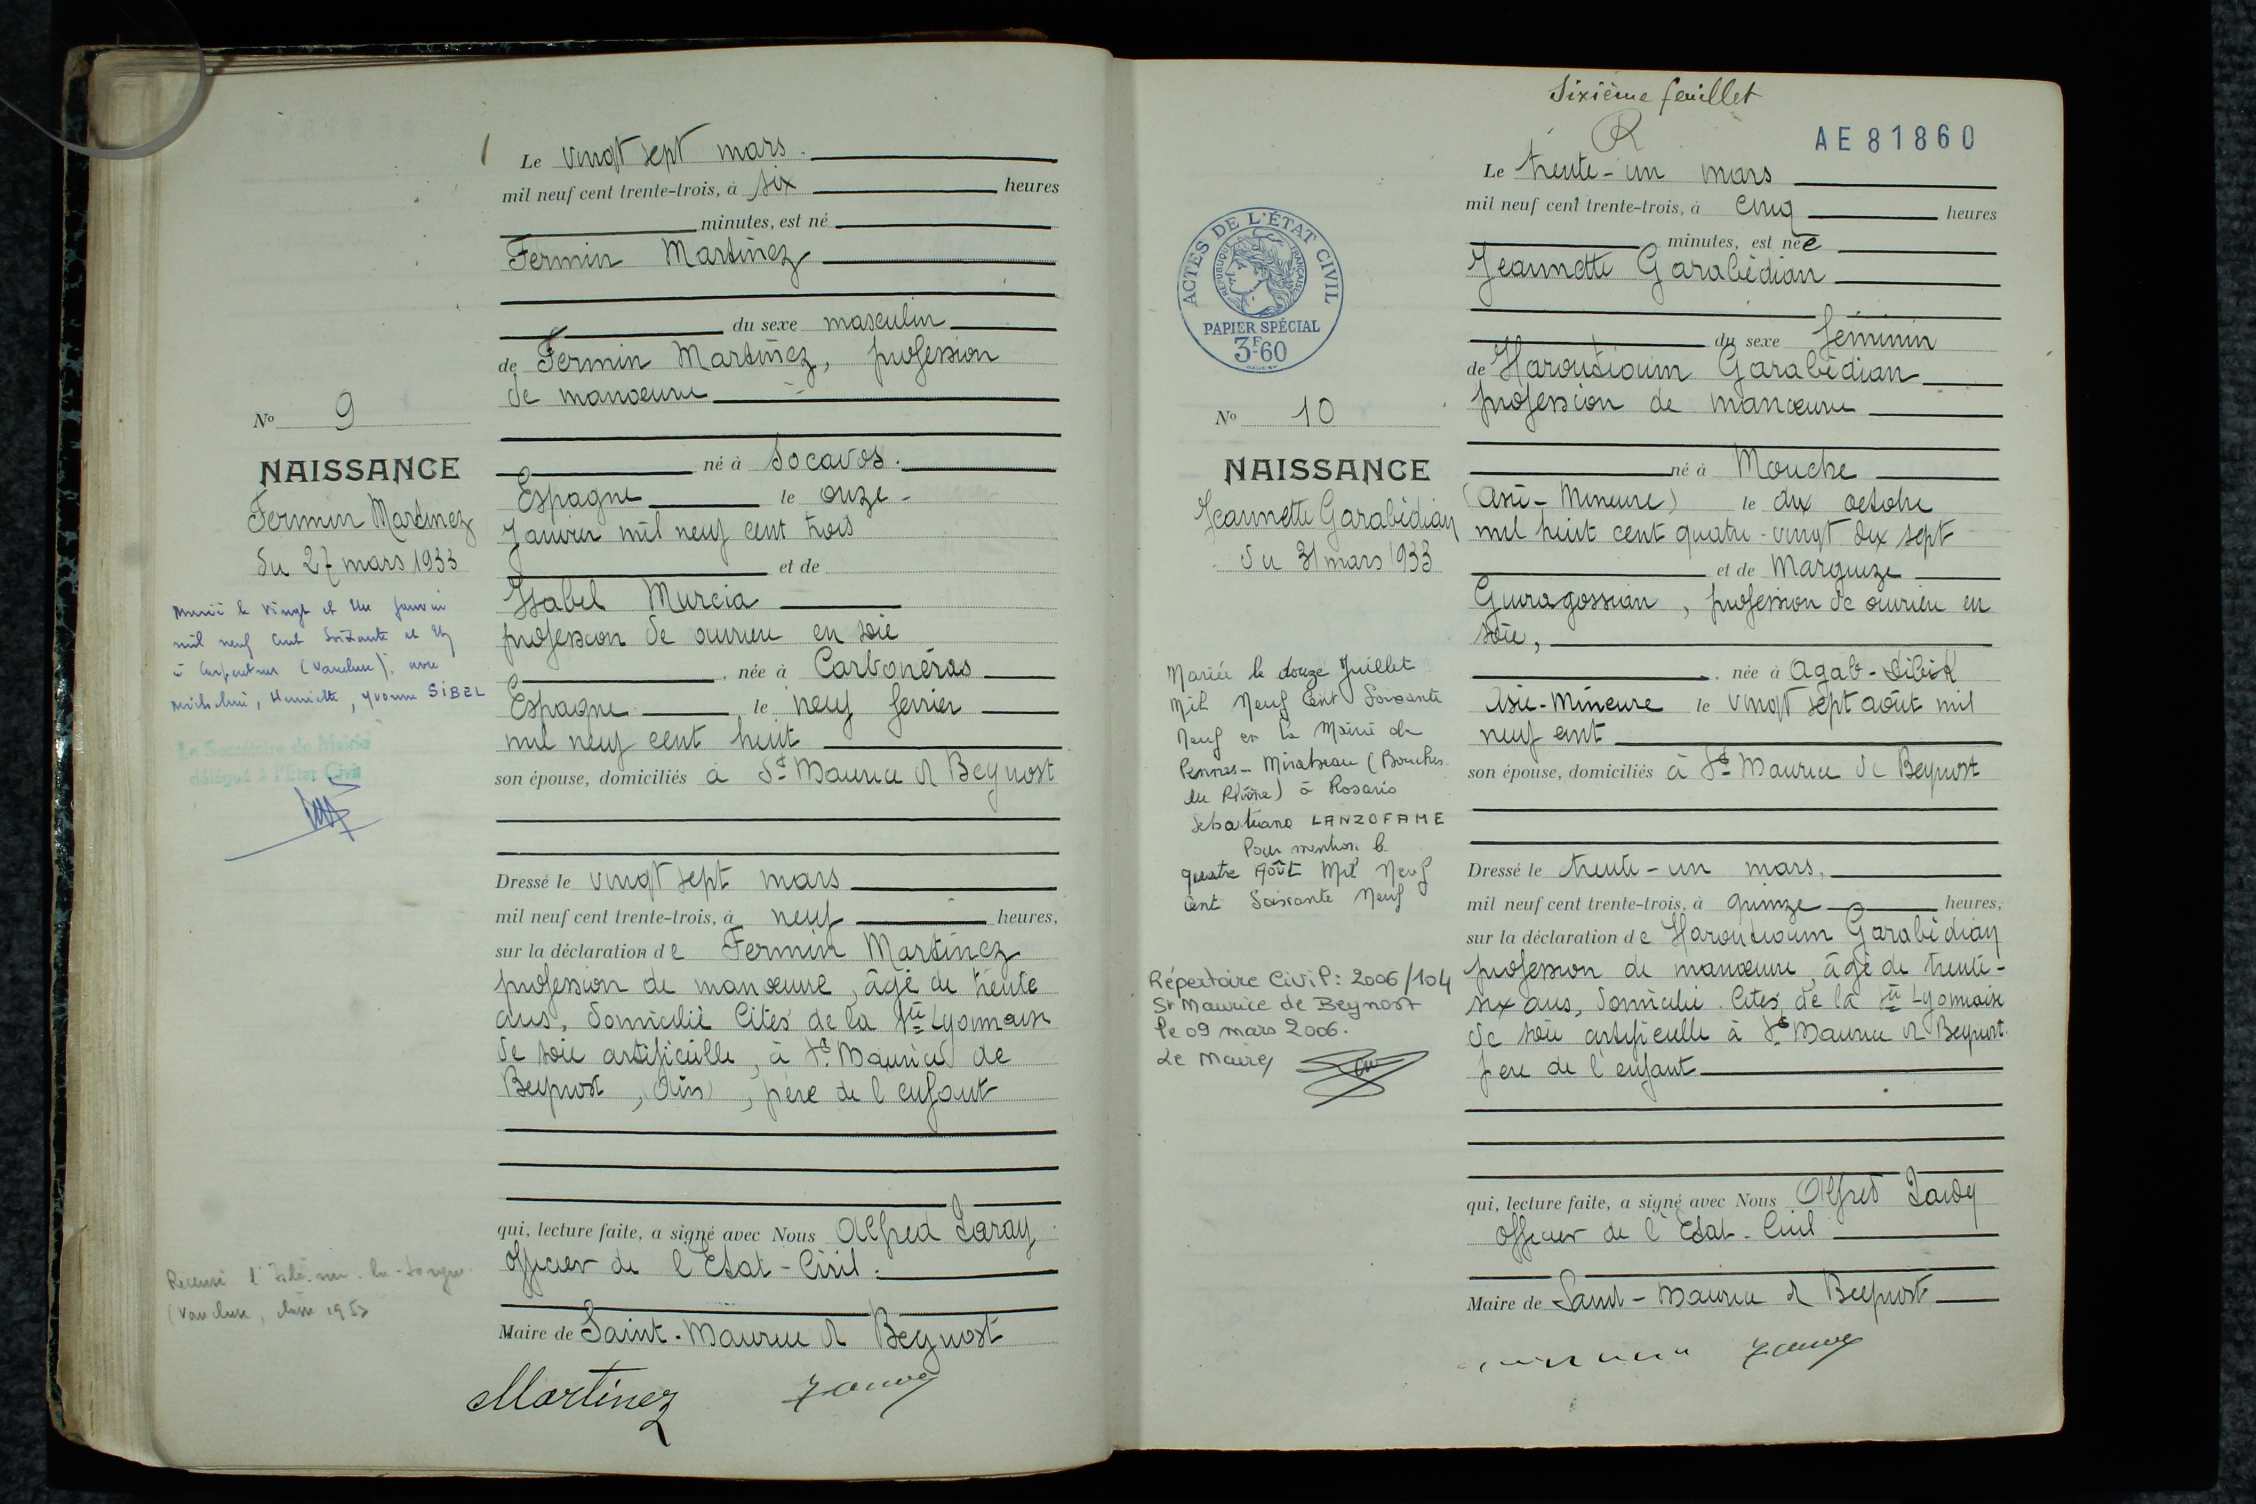 Le vingt sept mars.
mil neuf cent trente-trois, à six heures
minutes, est né
Fermin Martinez
du sexe masculin
de Fermin Martinez, profession
de manoeuvre
né à Socavos.
Espagne le onze
Janvier mil neuf cent trois
et de
Isabel Murcia
profession de ouvrière en soie
, née à Carbonéras
Espagne le neuf février
mil neuf cent huit
son épouse, domiciliés à St Maurice de Beynost
Dressé le vingt sept mars
mil neuf cent trente-trois, à neuf heures,
sur la déclaration de Fermin Martinez
profession de manoeuvre, âgé de trente
ans, domicilié Cités de la Sté Lyonnaise
de soie artificielle, à St Maurice de
Beynost, (Ain), père de l'enfant
qui, lecture faite, a signé avec Nous Alfred
Officier de l'Etat-Civil.
Maire de Saint-Maurice de Beynost
Martinez
No 9
NAISSANCE
Fermin Martinez
du 27 mars 1933
Marié le vingt et un janvier
mil neuf cent soixante et
à Carpentras (Vaucluse), avec
Micheline, Henriette, Yvonne SIBEL
Le Secrétaire de Mairie
délégué à l'Etat Civil
Recensé l'Isle-sur-la-Sorgue
(Vaucluse, classe 1953
Sixième feuillet
R
AE 81860
ACTES DE L'ÉTAT CIVIL
RÉPUBLIQUE FRANÇAISE
PAPIER SPÉCIAL
3F-60
No 10
NAISSANCE
Jeannette Garabédian
du 31 mars 1933
Mariée le douze Juillet
Mil Neuf Cent Soixante
Neuf en la Mairie de
Pennes-Mirabeau (Bouches
du Rhône) à Rosario
Sebastiano LANZOFAME
Pour mention le
quatre Août Mil Neuf
Cent Soixante Neuf
Répertoire Civil: 2006/104
St Maurice de Beynost
le 09 mars 2006.
Le Maire
Le trente-un mars
mil neuf cent trente-trois, à cinq heures
minutes, est née
Jeannette Garabédian
du sexe féminin
de Haroutioum Garabédian
profession de manoeuvre
né à Mouche
(Asie-Mineure) le dix octobre
mil huit cent quatre-vingt dix sept
et de
Guiragossian, profession de ouvrière en
soie,
, née à
Asie-Mineure le vingt sept août mil
neuf cent
son épouse, domiciliés à St Maurice de Beynost
Dressé le trente-un mars,
mil neuf cent trente-trois, à quinze heures,
sur la déclaration de Haroutioum Garabédian
profession de manoeuvre, âgé de trente-
six ans, domicilié Cités de la Sté Lyonnaise
de soie artificielle à St Maurice de Beynost.
père de l'enfant
qui, lecture faite, a signé avec Nous Alfred
Officier de l'Etat-Civil
Maire de Saint-Maurice de Beynost